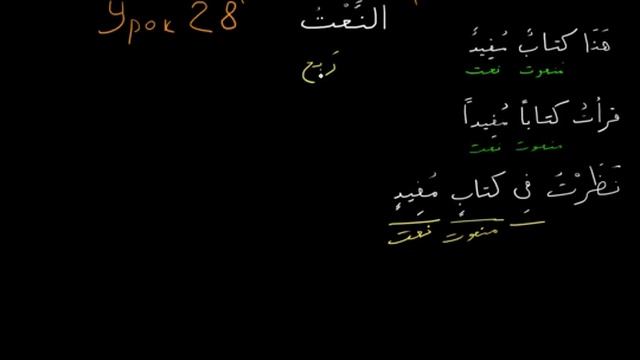 Урок 28
النَّعْتُ
رَبح
هَذَا كتابٌ مُفِيدٌ
منعوت نعت
قرأتُ كتاباً مُفِيداً
منعوت نعت
نَظَرْتُ فِي كتابٍ مُفِيدٍ
منعوت نعت